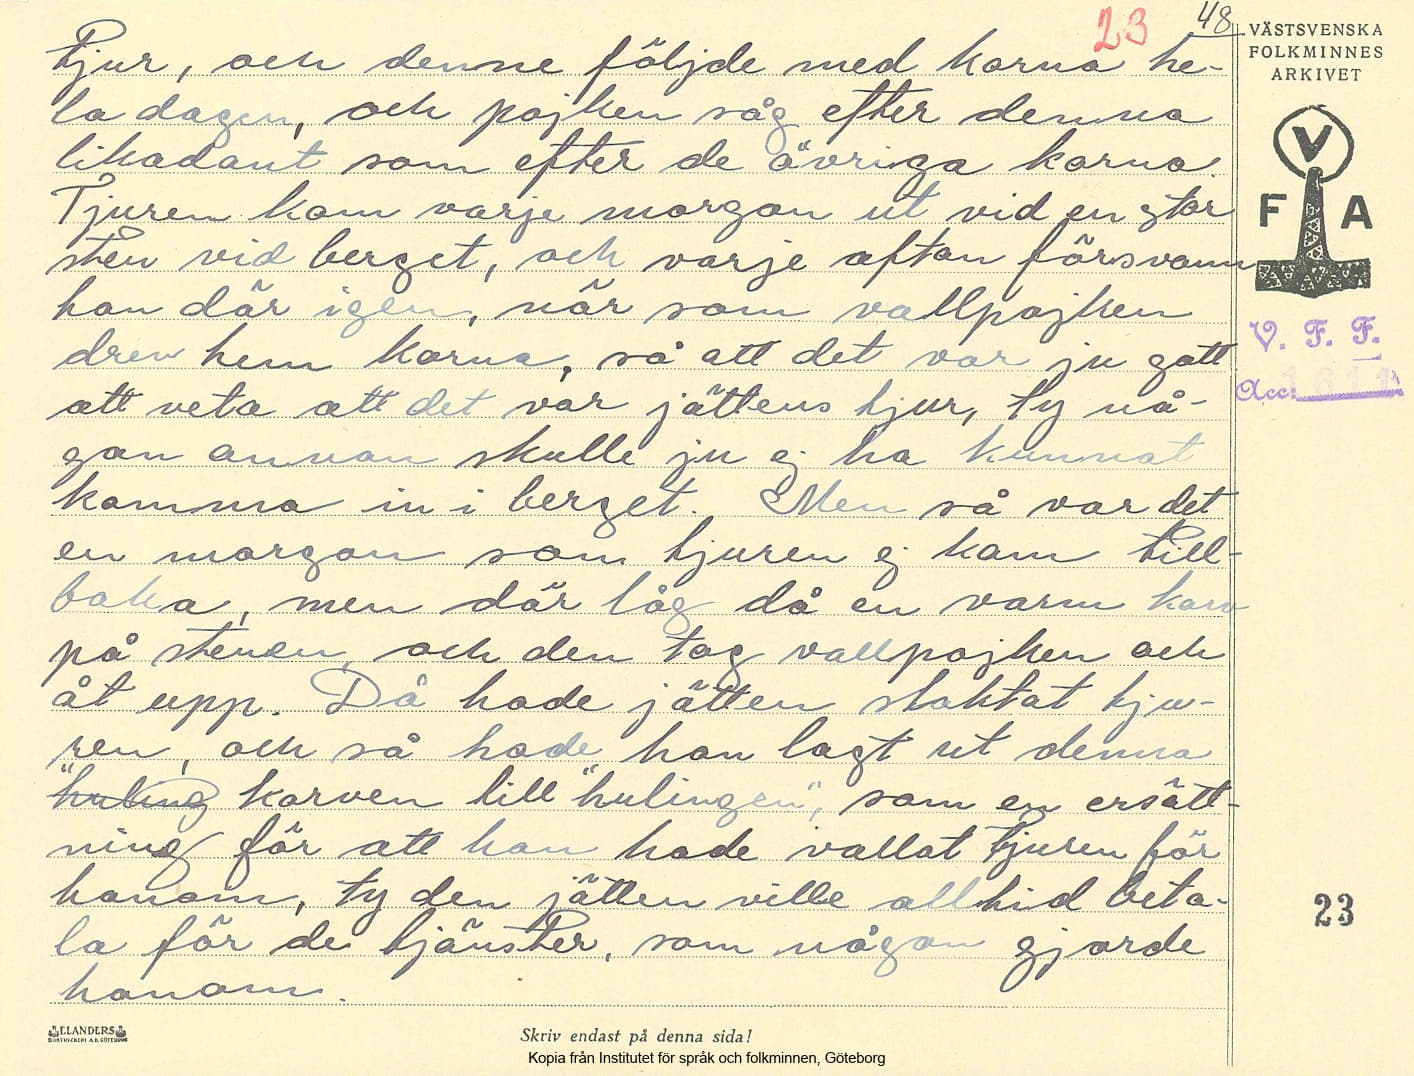 23
48
VÄSTSVENSKA
FOLKMINNES
ARKIVET
V
F A
V. F. F.
Acc: 1611
tjur, och denne följde med korna he-
la dagen, och pojken såg efter denna
likadant som efter de övriga korna.
Tjuren kom varje morgon ut vid en stor
sten vid berget, och varje afton försvann
han där igen, när som vallpojken
drev hem korna, så att det var ju gott
att veta att det var jättens tjur, ty nå-
gon annan skulle ju ej ha kunnat
komma in i berget. Men så var det
en morgon som tjuren ej kom till-
baka, men där låg då en varm korv
på stenen, och den tog vallpojken och
åt upp. Då hade jätten slaktat tju-
ren, och så hade han lagt ut denna
"huling korven till "hulingen", som en ersätt-
ning för att han hade vallat tjuren för
honom, ty den jätten ville alltid beta-
la för de tjänster, som någon gjorde
honom.
23
ELANDERS
BOKTRYCKERI A.B. GÖTEBORG
Skriv endast på denna sida!
Kopia från Institutet för språk och folkminnen, Göteborg